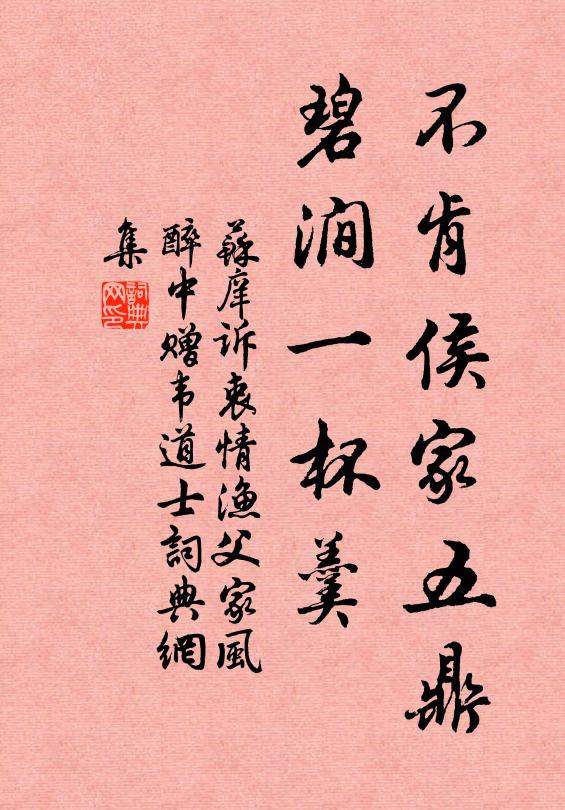 不肯侯家五鼎
碧涧一杯羹
蘇庠诉衷情渔父家風
醉中赠韦道士詞典網
集
詞典
网印